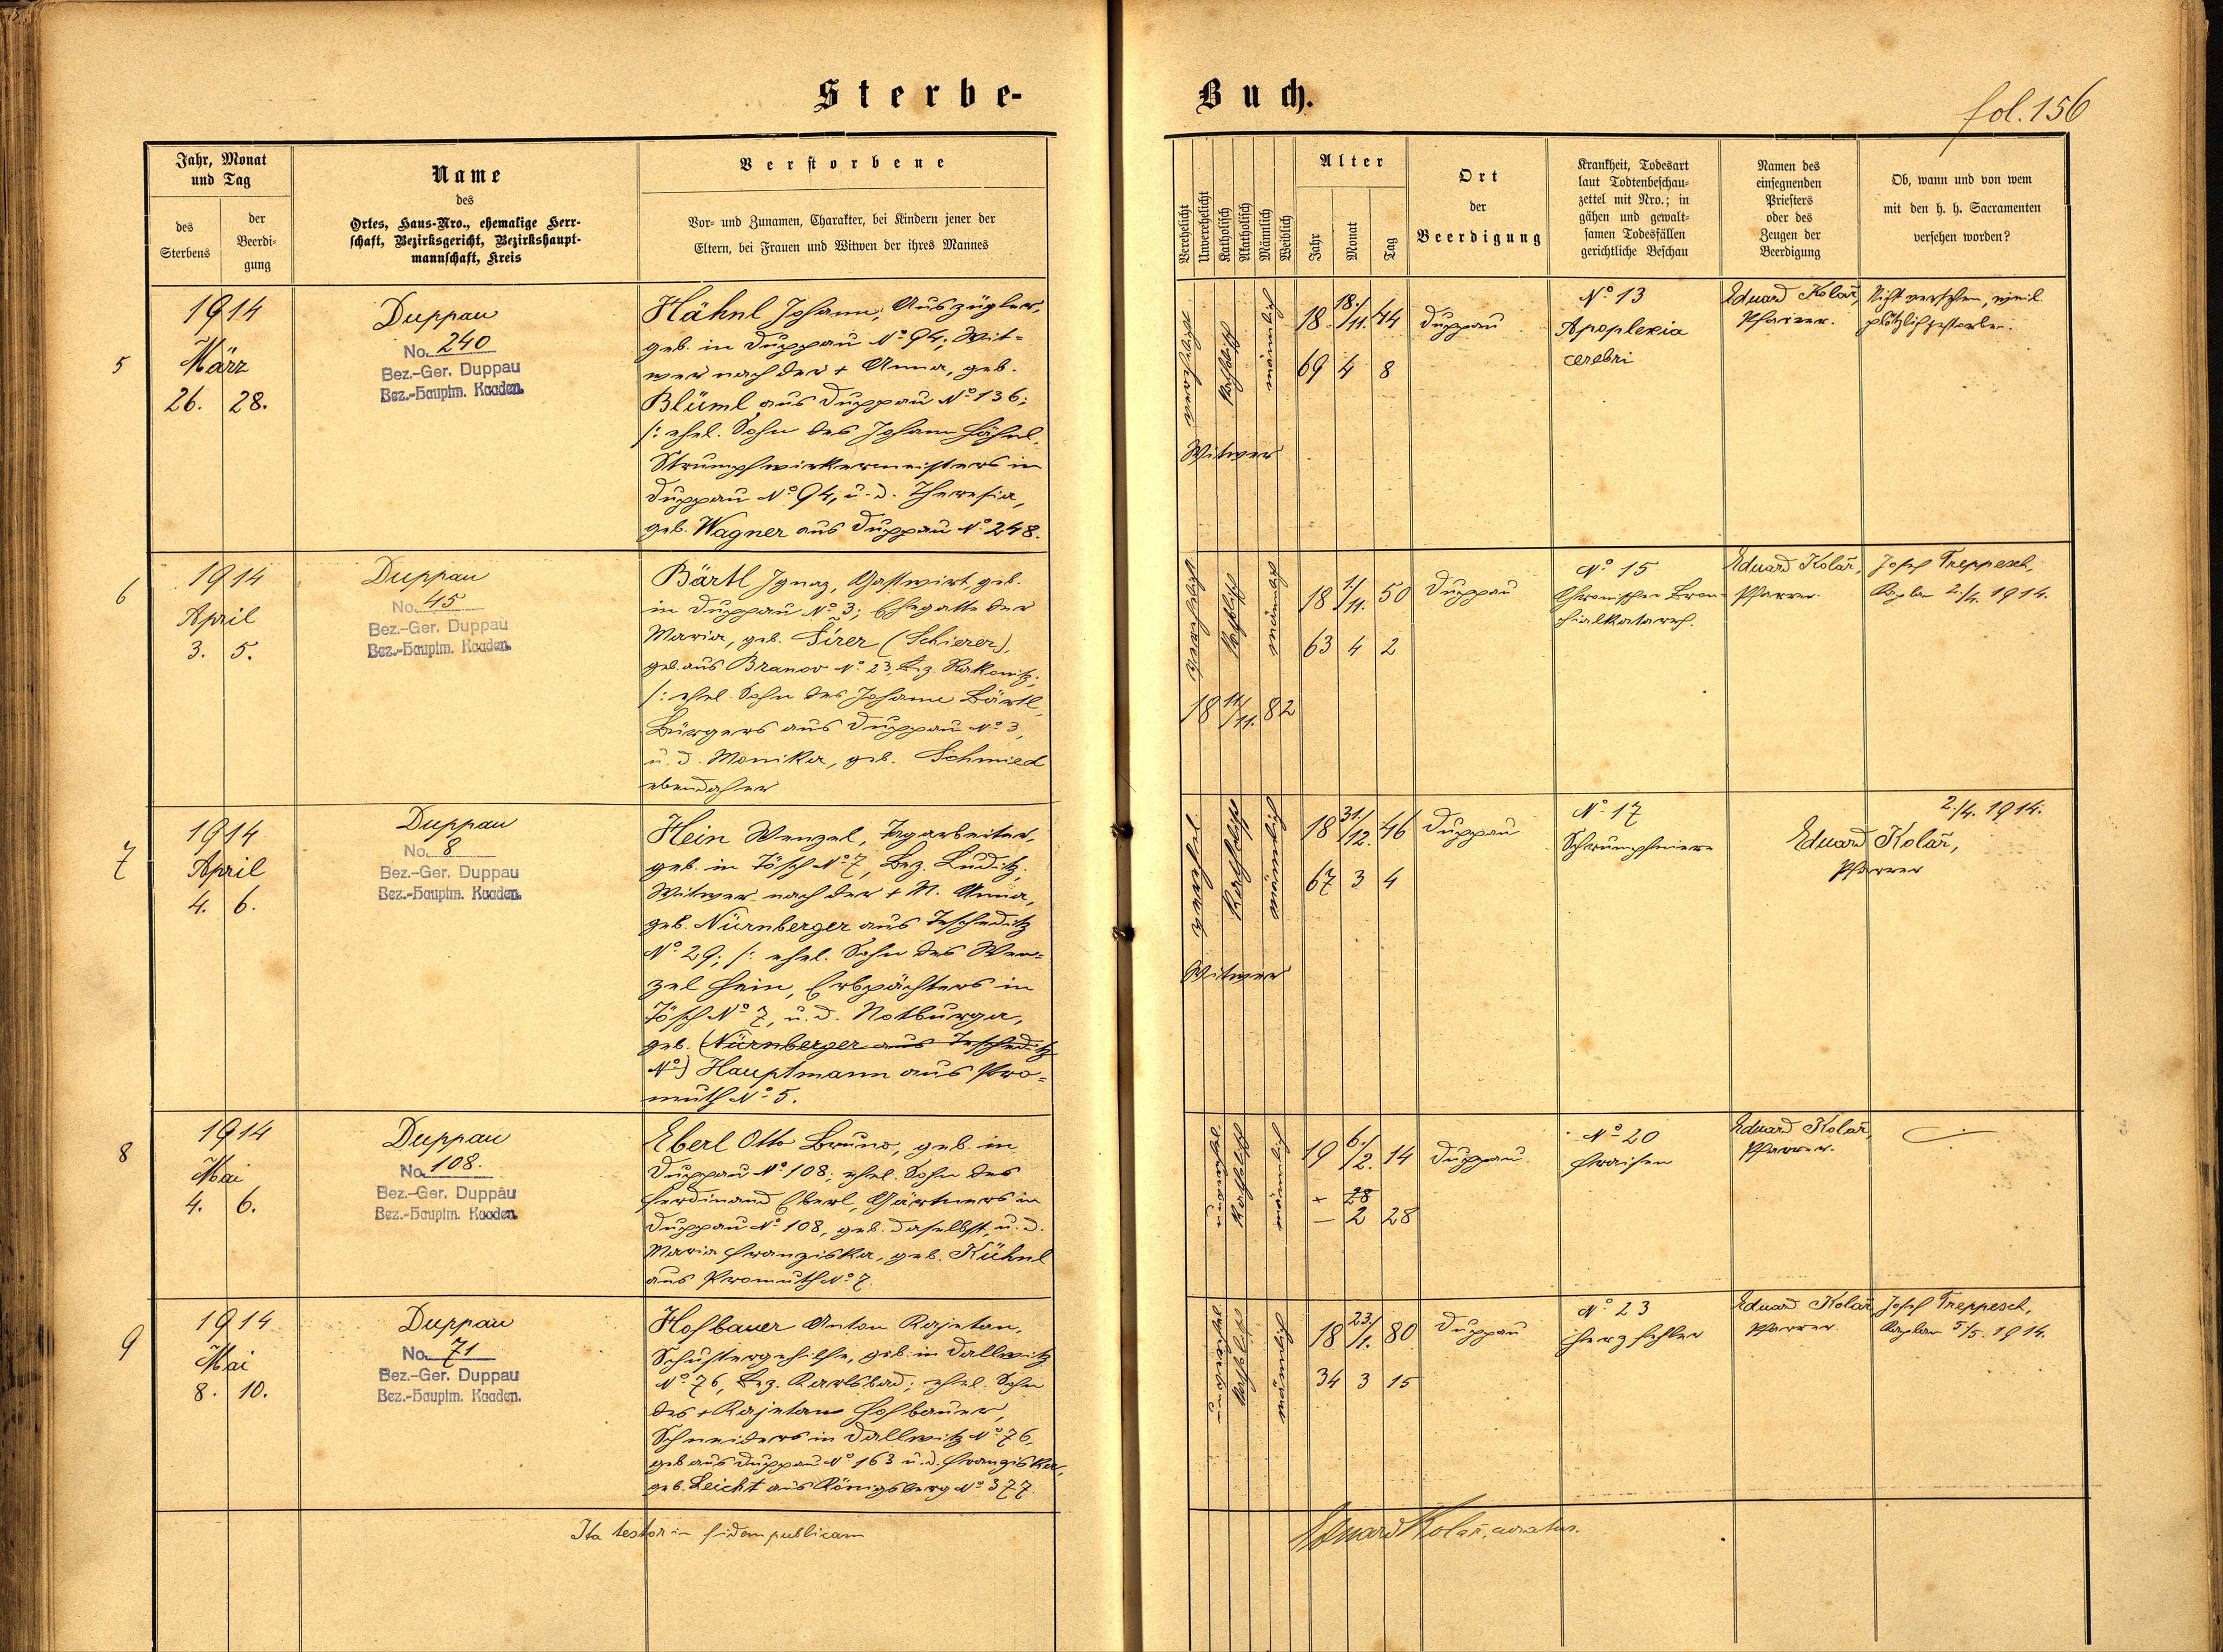 Sterbe-
Buch.
fol. 156
Jahr, Monat
und Tag
des
Sterbens
der
Beerdi-
gung
Name
des
Ortes, Haus-Nro., ehemalige Herr-
schaft, Bezirksgericht, Bezirkshaupt-
mannschaft, Kreis
Verstorbene
Vor- und Zunamen, Charakter, bei Kindern jener der
Eltern, bei Frauen und Witwen der ihres Mannes
Verehelicht
Unverehelicht
Katholisch
Akatholisch
Männlich
Weiblich
Alter
Jahr
Monat
Tag
Ort
der
Beerdigung
Krankheit, Todesart
laut Todtenbeschau-
zettel mit Nro.; in
gähen und gewalt-
samen Todesfällen
gerichtliche Beschau
Namen des
einsegnenden
Priesters
oder des
Zeugen der
Beerdigung
Ob, wann und von wem
mit den h. h. Sacramenten
versehen worden?
5
1914
März
26. 28.
Duppau
No. 240
Bez.-Ger. Duppau
Bez.-Hauptm. Kaaden.
Hähnl Johann, Auszügler,
geb. in Duppau No 94; Wit-
wer nach der + Anna, geb.
Blüml aus Duppau No 136;
/: ehel. Sohn des Johann Hähnl,
Strumpfwirkermeisters in
Duppau No 94, u. d. Theresia,
geb. Wagner aus Duppau No 248.
verehelicht
katholisch
männlich
Witwer
18 18./11. 44
69 4 8
Duppau
No 13
Apoplexia
cerebri
Eduard Kolář,
Pfarrer.
Nicht versehen, weil
plötzlich gestorben.
6
1914
April
3. 5.
Duppau
No. 45
Bez.-Ger. Duppau
Bez.-Hauptm. Kaaden.
Bärtl Ignaz, Gastwirt, geb.
in Duppau No 3; Ehegatte der
Maria, geb. Šírer (Schierer),
geb. aus Branov No 23, Bez. Rakonitz;
/: ehel. Sohn des Johann Bärtl,
Bürgers aus Duppau No 3,
u. d. Monika, geb. Schmied
ebendaher
verehelicht
katholisch
männlich
18 11/11. 82
18 1/11. 50
63 4 2
Duppau
No 15
Chronischer Bron-
chialkatarrh.
Eduard Kolář,
Pfarrer.
Josef Treppesch,
Kaplan 2./4. 1914.
7
1914
April
4. 6.
Duppau
No. 8
Bez.-Ger. Duppau
Bez.-Hauptm. Kaaden.
Hein Wenzel, Tagarbeiter,
geb. in Tösch No 7, Bez. Luditz;
Witwer nach der + M. Anna,
geb. Nürnberger aus Teschetitz
No 29; /: ehel. Sohn des Wen-
zel Hein, Erbpächters in
Tösch No 7, u. d. Notburga,
geb. (Nürnberger aus Teschetitz
No) Hauptmann aus Pro-
muth No 5.
verehel.
katholisch
männlich
Witwer
18 31./12. 46
67 3 4
Duppau
No 17
Schrumpfniere
2./4. 1914.
Eduard Kolář,
Pfarrer
8
1914
Mai
4. 6.
Duppau
No. 108.
Bez.-Ger. Duppau
Bez.-Hauptm. Kaaden.
Eberl Otto Bruno, geb. in
Duppau No 108; ehel. Sohn des
Ferdinand Eberl, Gärtners in
Duppau No 108, geb. daselbst, u. d.
Maria Franziska, geb. Kühnl
aus Promuth No 7.
unverehel.
katholisch
männlich
19 6./2. 14
- 2 28
Duppau
No 20
Fraisen
Eduard Kolář,
Pfarrer.
9
1914
Mai
8. 10.
Duppau
No. 71
Bez.-Ger. Duppau
Bez.-Hauptm. Kaaden.
Hofbauer Anton Kajetan,
Schustergehilfe, geb. in Dallwitz
No 76, Bez. Karlsbad; ehel. Sohn
des + Kajetan Hofbauer,
Schneiders in Dallwitz No 76,
geb. aus Duppau No 163 u. d. Franziska,
geb. Leicht aus Königsberg No 377.
unverehel.
katholisch
männlich
18 23./1. 80
34 3 15
Duppau
No 23
Herzfehler
Eduard Kolář,
Pfarrer.
Josef Treppesch,
Kaplan 5./5. 1914.
Ita testor in fidem publicam
Eduard Kolář, curatus.